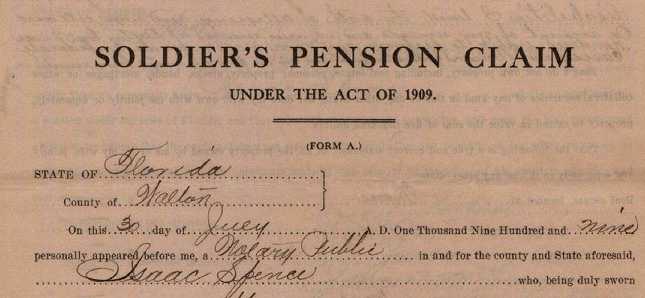 SOLDIER'S PENSION CLAIM
UNDER THE ACT OF 1909.
(FORM A.)
STATE OF Florida
County of Walton
On this 30 day of July A. D. One Thousand Nine Hundred and nine
personally appeared before me, a Notary Public in and for the county and State aforesaid,
Isaac Spence who, being duly sworn